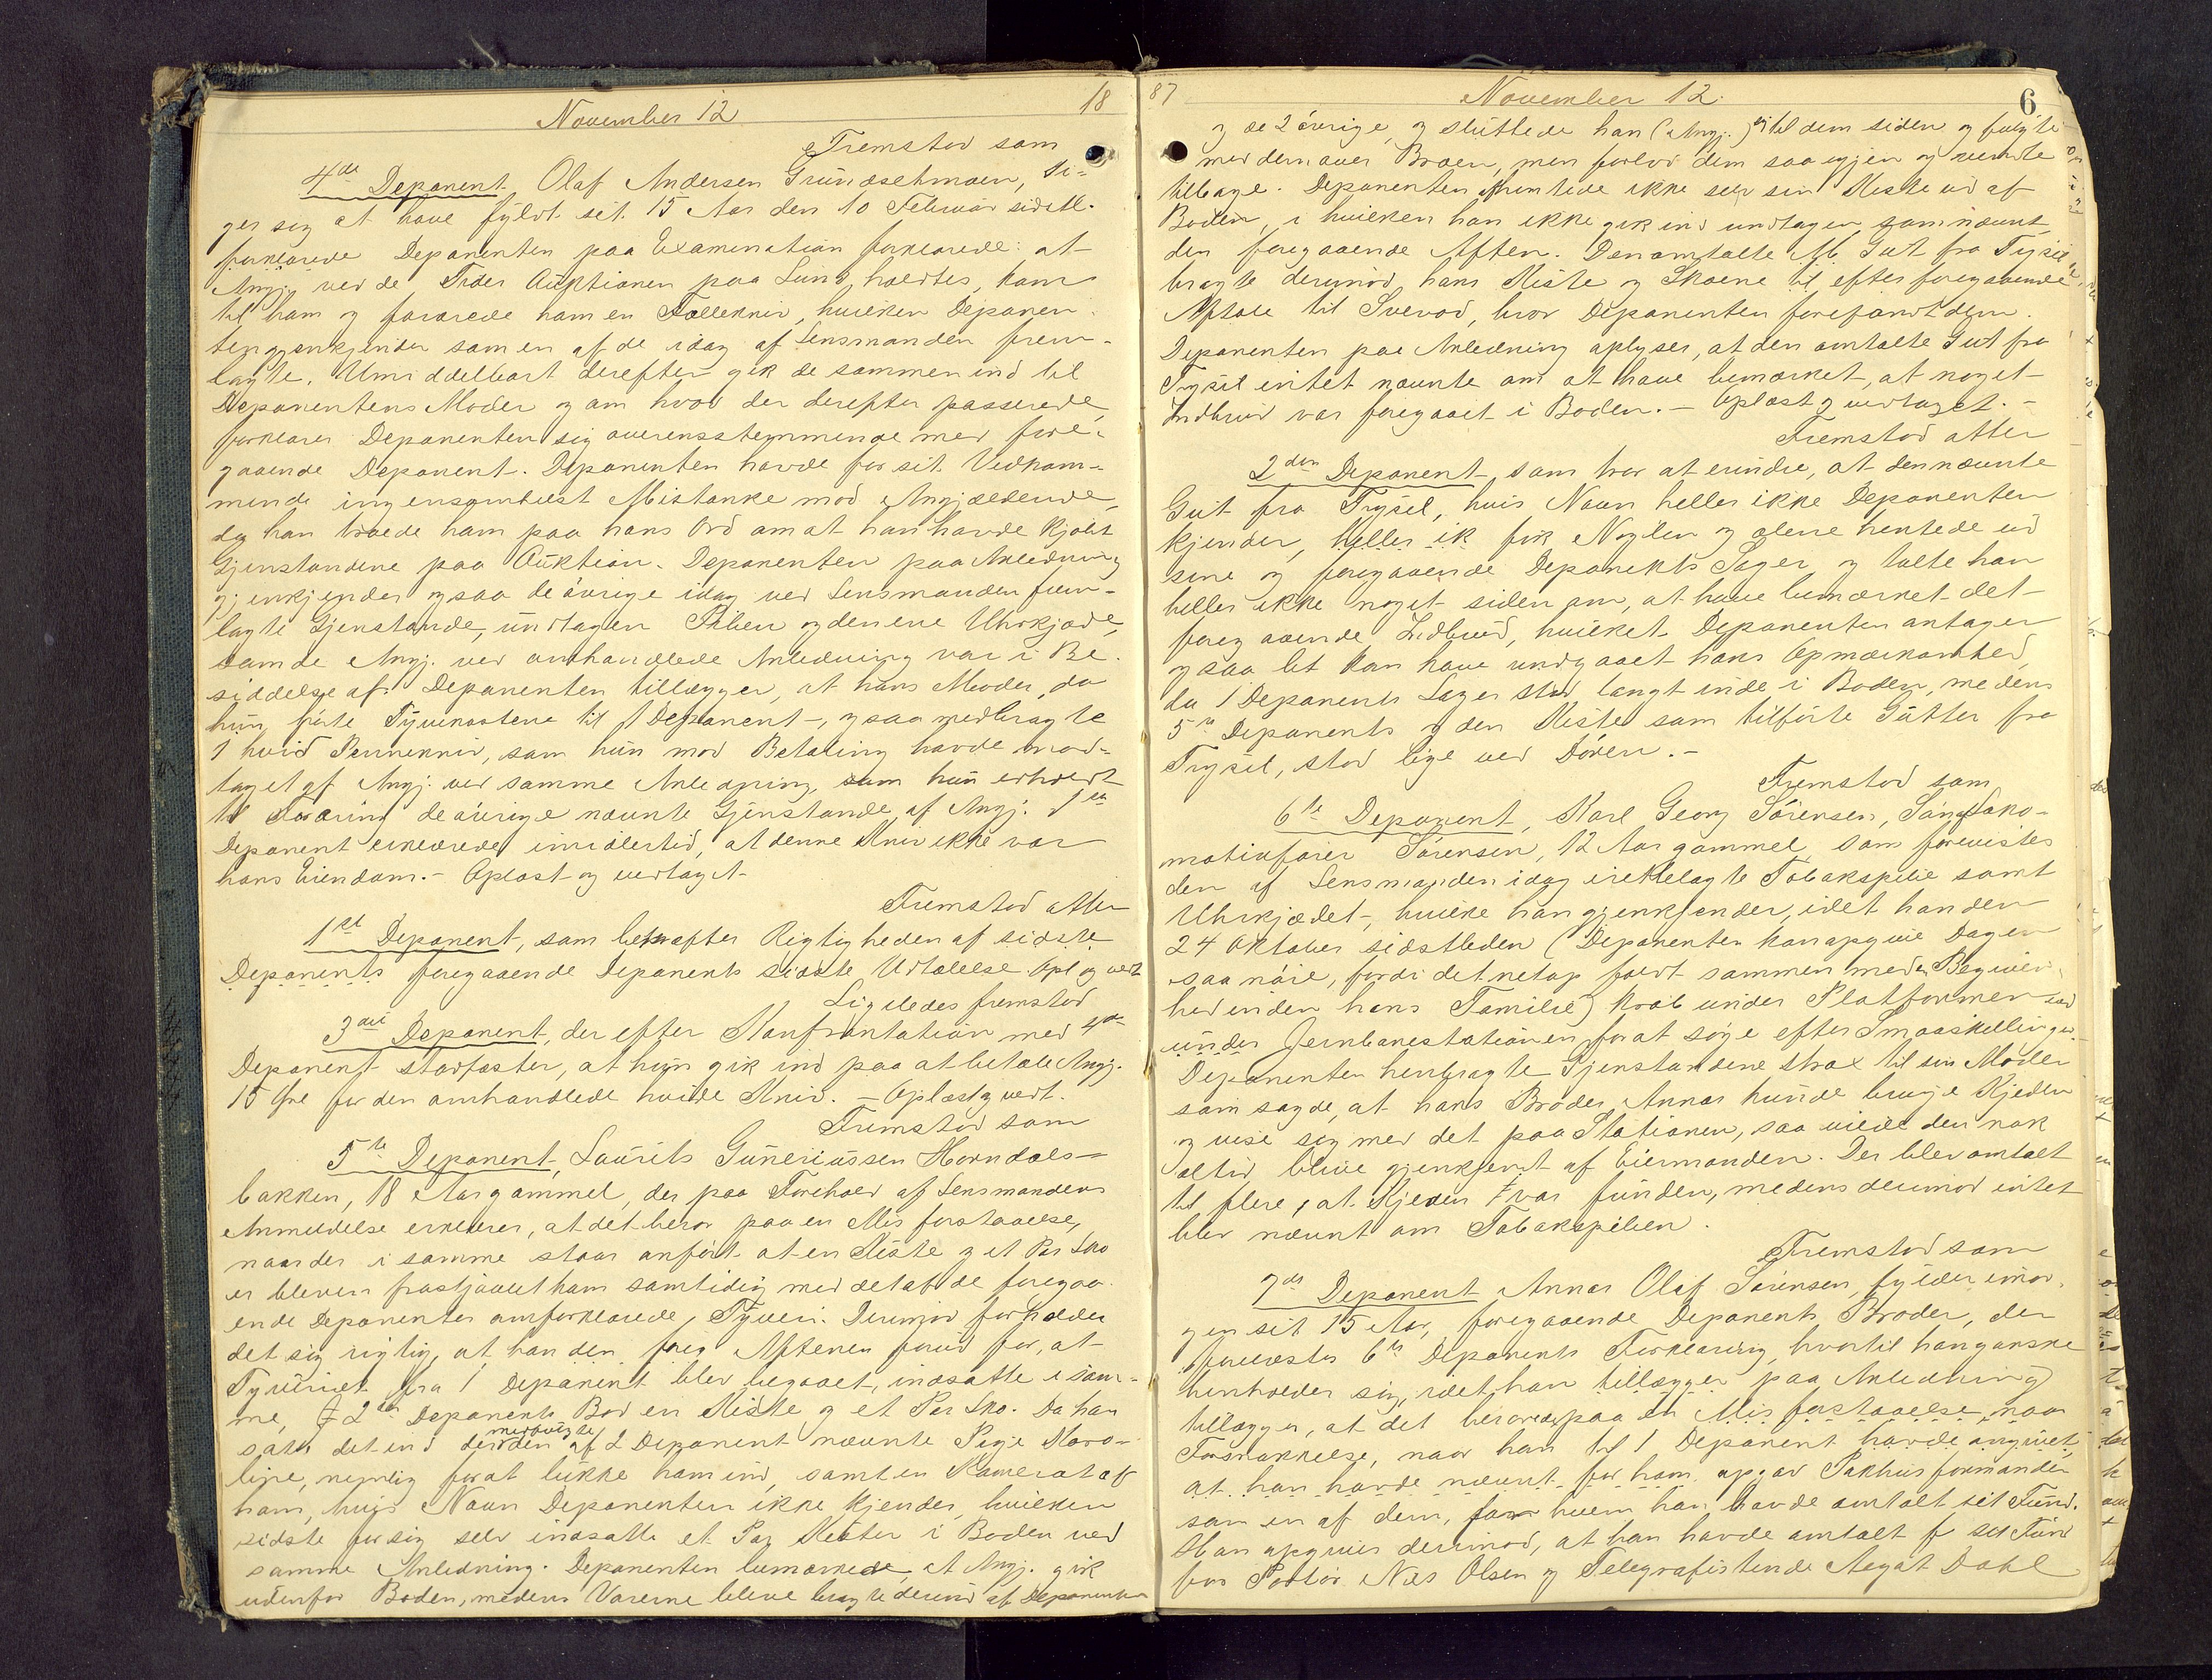 November 12
18
Fremstod som
4de Deponent, Olaf Andersen Grundsetmoen, si-
ger sig at have fyldt sit 15 Aar den 10 Februar sidstl.
forklarede Deponenten paa Examination forklarede: at
Angj. ved de Tider Auktionen paa Lund holdtes, kom
til ham og forærede ham en Follekniv, hvilken Deponen-
ten gjenkjender som en af de idag af Lensmanden frem-
lagte. Umiddelbart derefter gik de sammen ind til
Deponentens Moder og om hvad der derefter passerede,
forklarer Deponenten sig overensstemmende med fore-
gaaende Deponent. Deponenten havde for sit Vedkom-
mende ingensomhelst Mistanke mod Angjældende,
da han troede ham paa hans Ord om at han havde kjøbt
Gjenstandene paa Auktion. Deponenten paa Anledning
gjenkjender ogsaa de øvrige idag ved Lensmanden frem-
lagte Gjenstande, undtagen Piben og den ene Uhrkjæde,
som de Angj. ved omhandlede Anledning var i Be-
siddelse af. Deponenten tillægger, at hans Moder, da
hun førte Tyvekostene til 1 Deponent, ogsaa medbragte
1 hvid Pennekniv, som hun mod Betaling havde mod-
taget af Angj. ved samme Anledning, som hun erholdt
til Foræring de øvrige nævnte Gjenstande af Angj. 1ste
Deponent erklærede imidlertid, at denne Kniv ikke var
hans Eiendom. - Oplæst og vedtaget.
Fremstod atter
1ste Deponent, som bekræfter Rigtigheden af sidste
Deponents foregaaende Deponents sidste Udtalelse. Opl og vedt
Ligeledes fremstod
3die Deponent, der efter Konfrontation med 4de
Deponent stadfæster, at hun gik ind paa at betale Angj.
15 Øre for den omhandlede hvide Kniv. - Oplæst og vedt.
Fremstod som
5te Deponent, Laurits Guneriussen Horndals-
bakken, 18 Aar gammel, der paa Forehold af Lensmandens
Anmeldelse erklærer, at det beror paa en Misforstaaelse,
naar der i samme staar anført at en Kiste og et Par Sko
er bleven frastjaalet ham samtidig med det af de foregaa-
ende Deponenter omforklarede Tyveri. Derimod forholder
det sig rigtig, at han den foreg Aftenen forud for, at
Tyveriet fra 1 Deponent blev begaaet, indsatte i sam-
me, 2den Deponents Bod en Kiste og et Par Sko. Da han
satte det ind medfulgte den af 2 Deponent nævnte Pige Karo-
line, nemlig for at lukke ham ind, samt en Kamerat af
ham, hvis Navn Deponenten ikke kjender, hvilken
sidste for sig selv indsatte et Par Kister i Boden ved
samme Anledning. Deponenten bemærkede, at Angj. gik
udenfor Boden, medens Varerne bleve bragte derind af Deponenten
87
November 12.
6
og de 2 øvrige, og sluttede han (Angj.) sig til dem siden og fulgte
med dem over Broen, men forlod dem saa igjen og vendte
tilbage. Deponenten hentede ikke selv sin Kiste ud af
Boden, i hvilken han ikke gik ind undtagen som nævnt
den foregaaende Aften. Den omtalte Gut fra Trysil
bragte derimod hans Kiste og Skoene til efter foregaaende
Aftale til Svevod, hvor Deponenten forefandt dem.
Deponenten paa Anledning oplyser, at den omtalte Gut fra
Trysil intet nævnte om at have bemærket, at noget
Indbrud var foregaaet i Boden. - Oplæst og vedtaget. -
Fremstod atter
2den Deponent, som tror at erindre, at den nævnte
Gut fra Trysil, hvis Navn heller ikke Deponenten
kjender, heller ik fik Nøglen og alene hentede ud
sine og foregaaende Deponents Sager og talte han
heller ikke noget siden om, at have bemærket det
foregaaende Indbrud, hvilket Deponenten antager
ogsaa let kan have undgaaet hans Opmærksomhed,
da 1 Deponents Sager stod langt inde i Boden, medens
5te Deponents og den Kiste som tilførte Gutten fra
Trysil, stod lige ved Døren. -
Fremstod som
6te Deponent, Karl Georg Sørensen, Søn af Loko-
motivfører Sørensen, 12 Aar gammel, som forevistes
den af Lensmanden idag irettelagte Tobakspibe samt
Uhrkjædet, hvilke han gjenkjender, idet han den
24 Oktober sidstleden (Deponenten kan opgive Dagen
saa nøie, fordi det netop faldt sammen med en Begiven-
hed inden hans Familie) krøb under Platformen ved
under Jernbanestationen for at søge efter Smaaskillinger.
Deponenten henbragte Gjenstandene strax til sin Moder
som sagde, at hans Broder Annar kunde bruge Kjeden
og vise sig med det paa Stationen, saa vilde den nok
altid blive gjenkjendt af Eiermanden. Der blev omtalt
til flere, at Kjeden var funden, medens derimod intet
blev nævnt om Tobakspiben.
Fremstod som
7de Deponent Annar Olaf Sørensen, fylder imor-
gen sit 15 Aar, foregaaende Deponents Broder, der
forelæstes 6te Deponents Forklaring, hvortil han ganske
henholder sig, idet han tillægger paa Anledning
tillægger, at det beroede paa en Misforstaaelse naar
Forsnakkelse, naar han til 1 Deponent havde angivet,
at han havde nævnt for ham opgav Pakhusformanden
som en af dem, for hvem han havde omtalt sit Fund.
Han opgiver derimod, at han havde omtalt sit Fund
for Portør Nils Olsen og Telegrafistinde Aagat Dahl